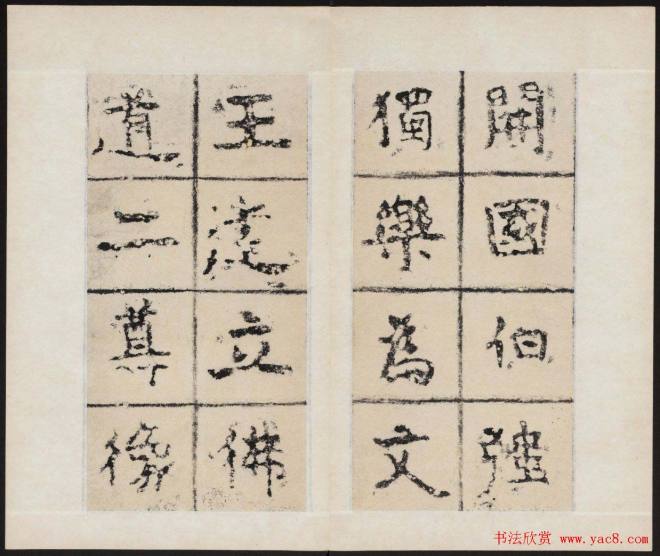 開國伯強
獨樂為文
王造立佛
道二尊像
书法欣赏 www.yac8.com